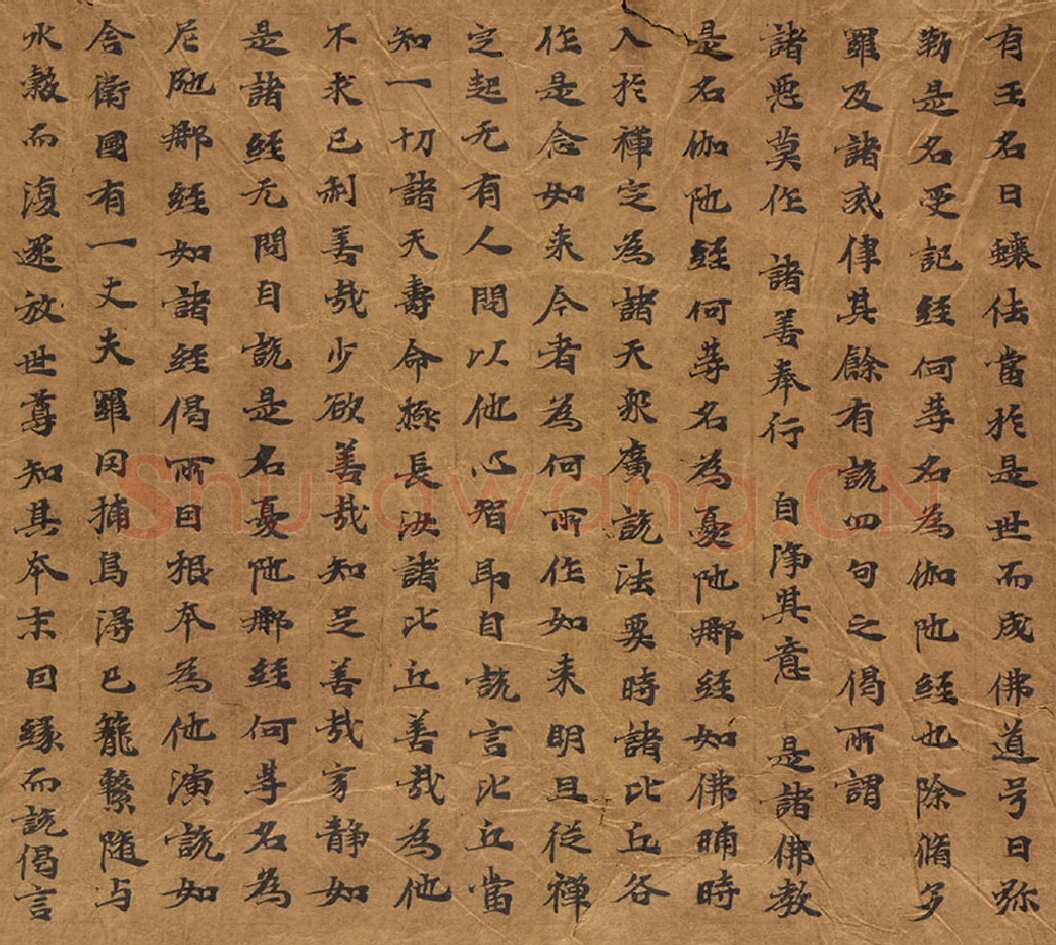 有王名曰蠰佉當於是世而成佛道号曰弥
勒是名受記經何等名為伽陁經也除脩多
羅及諸戒律其餘有說四句之偈所謂
諸惡莫作 諸善奉行 自淨其意 是諸佛教
是名伽陁經何等名為憂陁那經如佛晡時
入於禪定為諸天衆廣說法要時諸比丘各
作是念如来今者為何所作如来明旦従禪
定起无有人問以他心智即自說言比丘當
知一切諸天壽命極長汝諸比丘善哉為他
不求已利善哉少欲善哉知足善哉寂静如
是諸經无問自說是名憂陁那經何等名為
尼陁那經如諸經偈所因根本為他演說如
舍衛國有一丈夫羅罔捕鳥得已籠繫随与
水穀而復還放世尊知其本末因緣而說偈言
Shufawang.CN